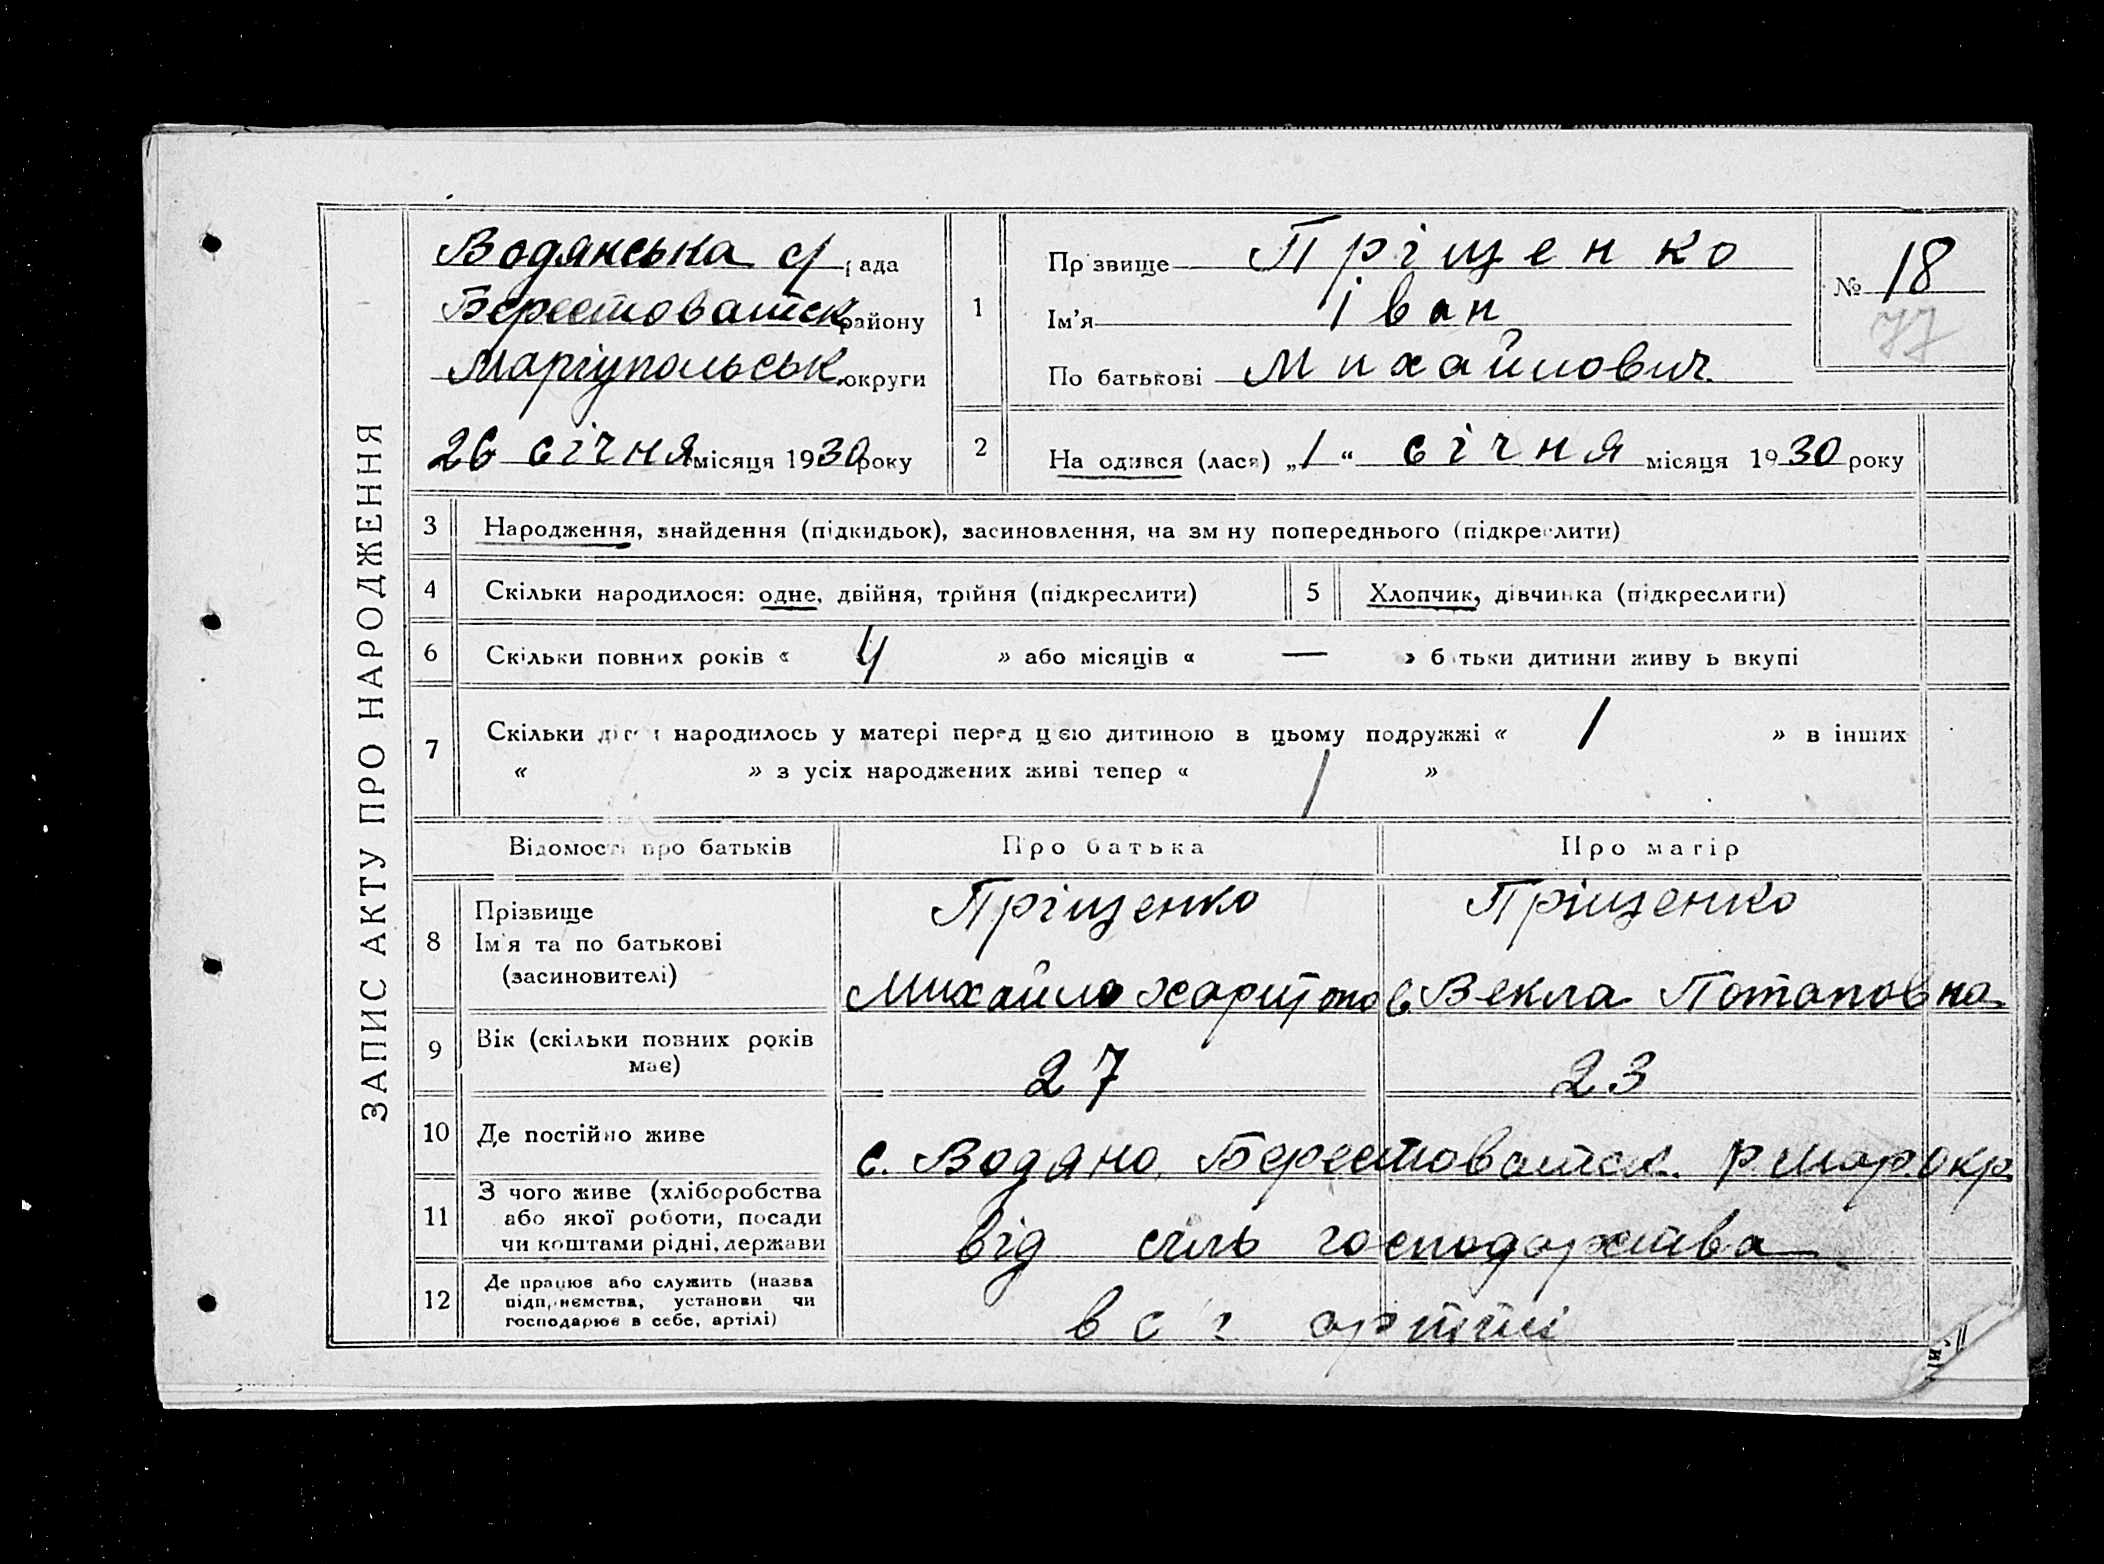 ЗАПИС АКТУ ПРО НАРОДЖЕННЯ
Водянська с/рада
Берестоватськ району
Маріупольськ. округи
26 січня місяця 1930 року
1
Прізвище Пріщенко
Ім'я Іван
По батькові Михайлович
№ 18
77
2
Народився (лася) „1“ січня місяця 1930 року
3 Народження, знайдення (підкидьок), засиновлення, на зміну попереднього (підкреслити)
4 Скільки народилося: одне, двійня, трійня (підкреслити)
5 Хлопчик, дівчинка (підкреслити)
6 Скільки повних років « 4 » або місяців « — » батьки дитини живуть вкупі
7 Скільки дітей народилось у матері перед цією дитиною в цьому подружжі « 1 » в інших
« » з усіх народжених живі тепер « 1 »
Відомості про батьків Про батька Про матір
8 Прізвище
Ім'я та по батькові
(засиновителі)
Пріщенко Пріщенко
Михайло Харитонов Векла Потаповна
9 Вік (скільки повних років
має)
27 23
10 Де постійно живе
с. Водяно, Берестоватск. р. Мар. окр.
11 З чого живе (хліборобства
або якої роботи, посади
чи коштами рідні, держави
від сіль господарства
12 Де працює або служить (назва
підприємства, установи чи
господарює в себе, артілі)
в с г артілі